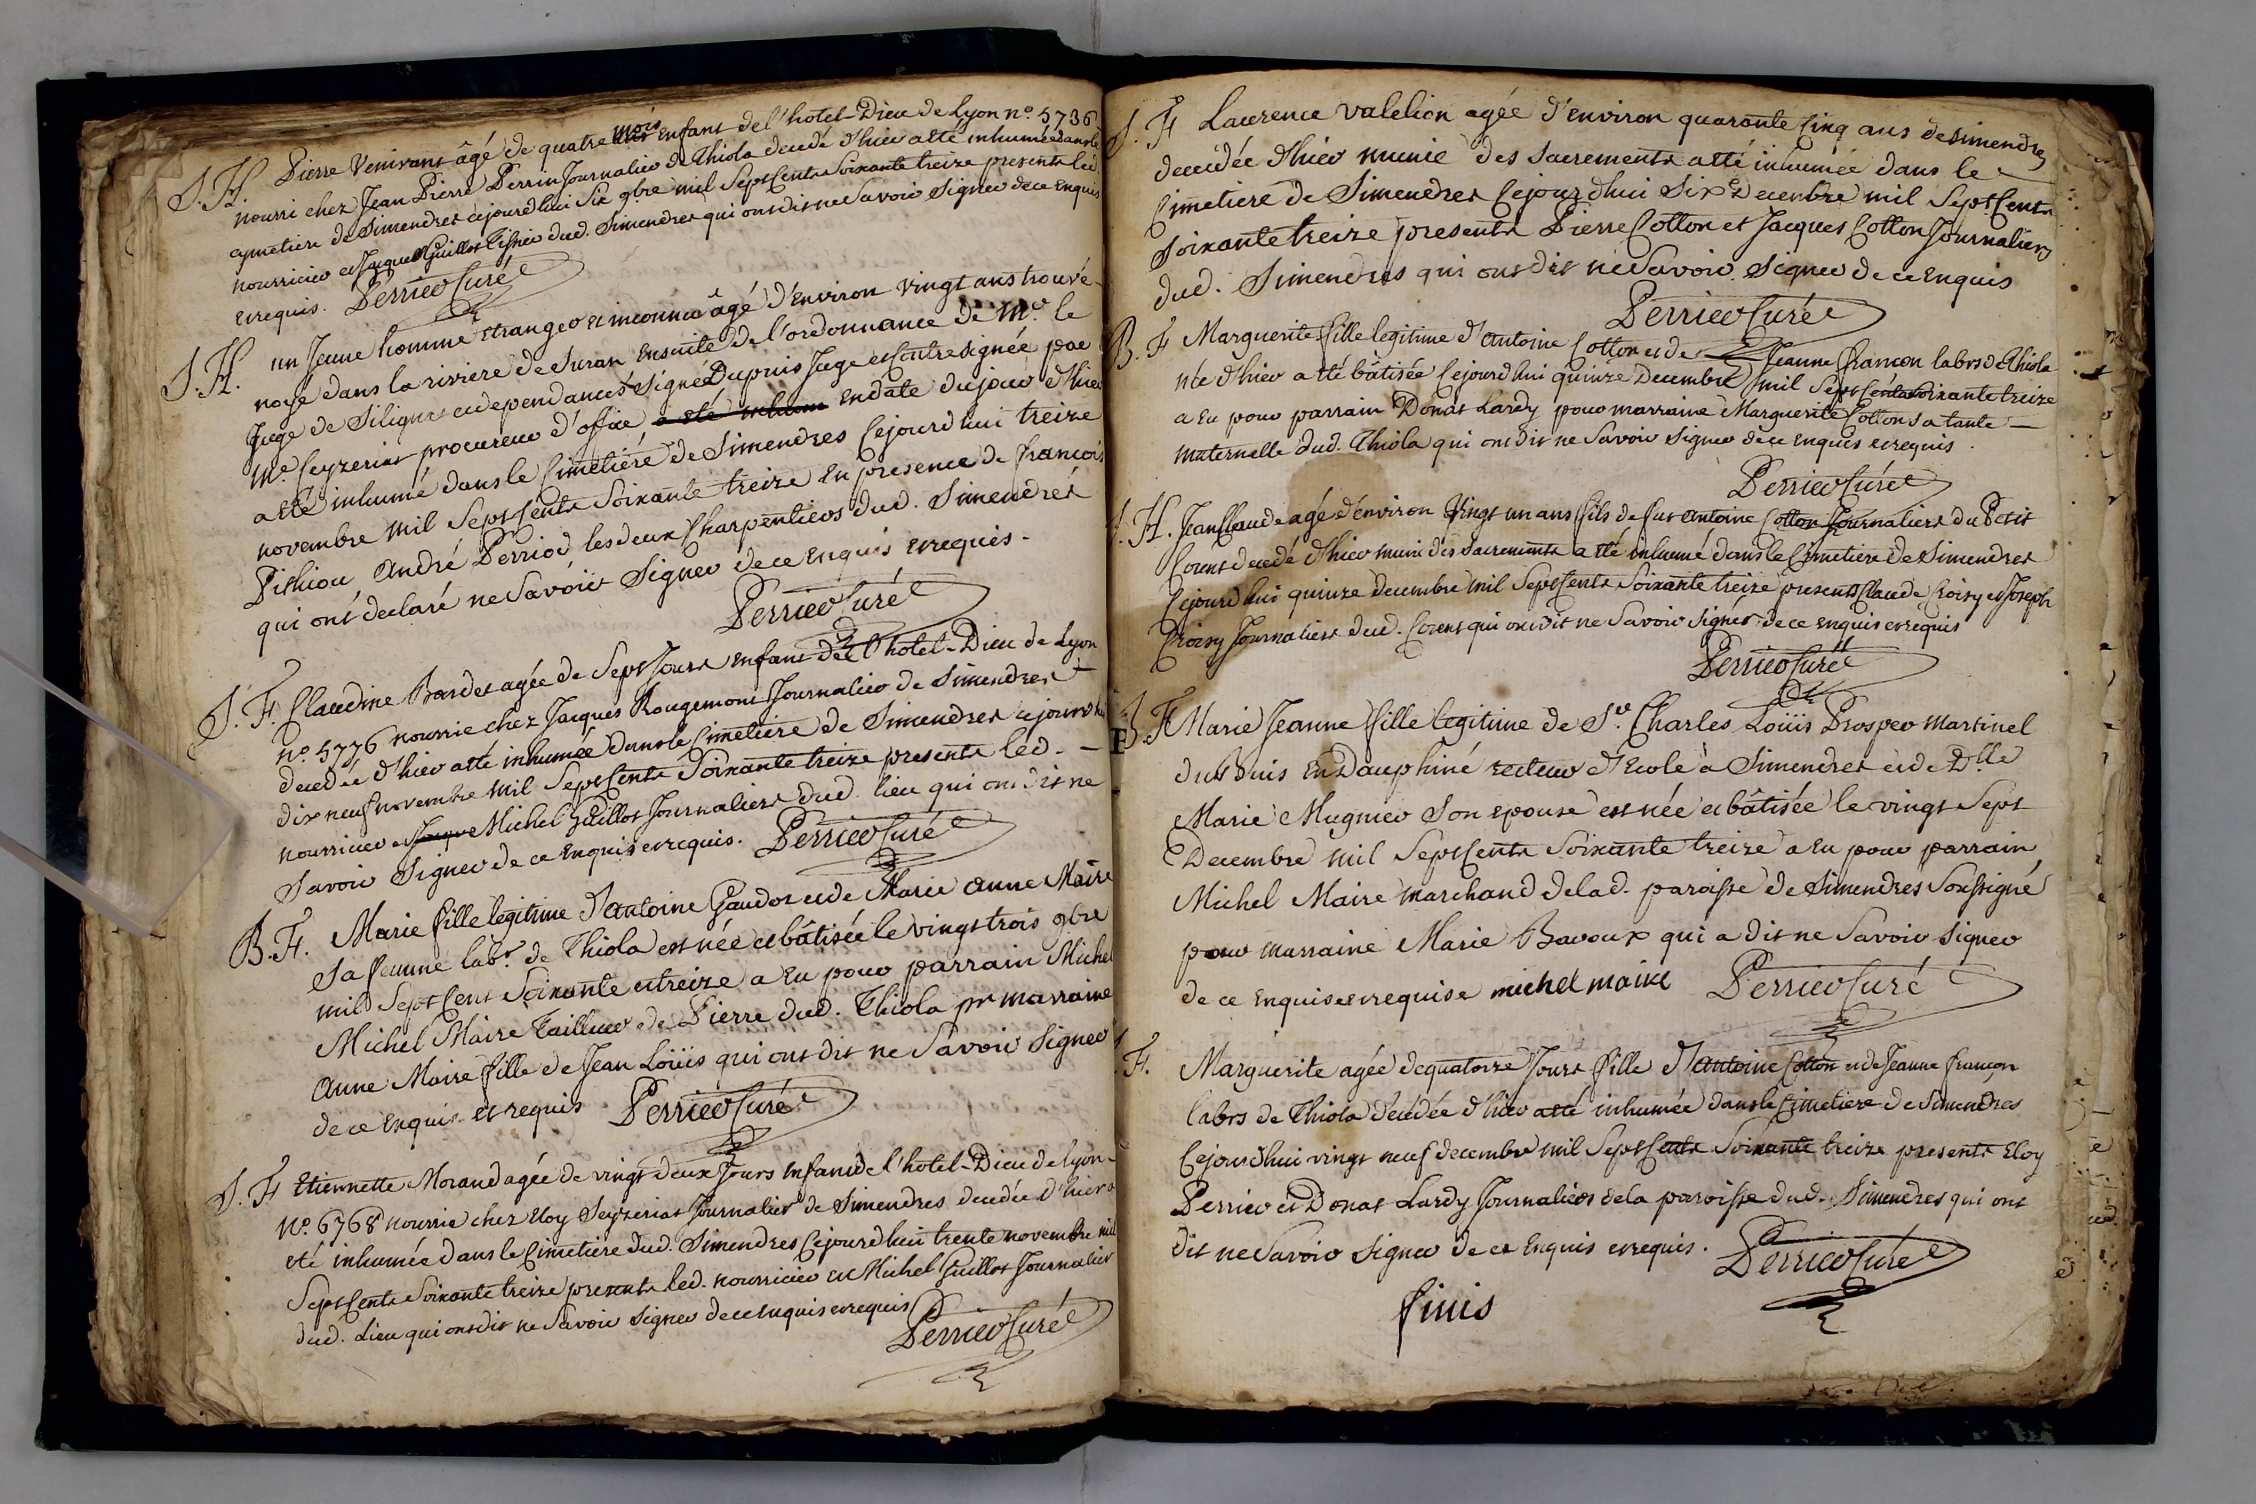 S. H. Pierre Venivant âgé de quatre mois enfant de l'hotel-Dieu de Lyon n° 5736
nourri chez Jean Pierre Perrin Journalier de Thiola decedé d'hier a été inhumé dans le
cymetiere de Simendres cejourd'hui Six 9bre mil Sept Cents Soixante treize presents led.
nourricier et Jacques Guillot Tissier dud. Simendres qui ont dit ne Savoir Signer de ce Enquis
et requis. Perrier Curé
S. H. un Jeune homme etranger et inconnu âgé d'Environ vingt ans trouvé
noyé dans la riviere de Suran Ensuite de l'ordonnance de Mr. le
Juge de Silignat et dependances signé Dupuis Juge et Contresignée par
Me. Ceyzeriat procureur d'office a eté inhum En date du jour d'hier
a Eté inhumé dans le Cimetiére de Simendres Cejourd'hui treize
novembre mil Sept Cents Soixante treize En presence de francois
Pithiou André Perriod les deux Charpentiers dud. Simendres
qui ont declaré ne Savoir Signer de ce Enquis et requis.
Perrier Curé
S. F. Claudine Bardet agée de Sept Jours enfant de l'hotel-Dieu de Lyon
n° 5776 nourrie chez Jacques Rougemont Journalier de Simendres
decedée d'hier a été inhumée dans le Cimetiere de Simendres cejourd'hui
dix neuf novembre mil Sept Cents Soixante treize presents led.
nourricier et Jaque Michel Guillot Journaliers dud. lieu qui ont dit ne
Savoir Signer de ce Enquis et requis. Perrier Curé
B. F. Marie fille legitime d'antoine Gaudot et de Marie anne Maire
Sa femme labr. de Thiola est née et bâtisée le vingt trois 9bre
mil Sept Cent Soixante et treize a Eu pour parrain Michel
Michel Maire Tailleur de Pierre dud. Thiola pr marraine
Anne Maire fille de Jean Loüis qui ont dit ne Savoir Signer
de ce Enquis et requis Perrier Curé
S. F. Etiennette Morand agée de vingt deux Jours enfant de l'hotel-Dieu de Lyon
N° 6768 nourrie chez Eloy Seyzeriat Journalier de Simendres decedée d'hier a
eté inhumée dans le Cimetiere dud. Simendres Cejourd'hui trente novembre mil
Sept Cents Soixante treize presents led. nourricier et Michel Guillot Journalier
dud. Lieu qui ont dit ne Savoir Signer de ce Enquis et requis
Perrier Curé
S. F. Laurence valelion agée d'environ quarante Cinq ans de Simendres
decedée d'hier munie des Sacrements a été inhumée dans le
Cimetiere de Simendres Cejourd'hui Six Decembre mil Sept Cents
Soixante treize presents Pierre Cotton et Jacques Cotton Journaliers
dud. Simendres qui ont dit ne Savoir Signer de ce Enquis
Perrier Curé
B. F. Marguerite fille legitime d'antoine Cotton et de Jeanne françon labrs de Thiola
née d'hier a été bâtisée Cejourd'hui quinze Decembre mil Sept Cents Soixante treize
a Eu pour parrain Donat Lardy pour marraine Marguerite Cotton Sa tante
maternelle dud. Thiola qui ont dit ne Savoir Signer de ce Enquis et requis.
Perrier Curé
S. H. Jean Claude agé d'environ Vingt un ans fils de fut antoine Cotton Journaliers du Petit
Corent decedé d'hier muni des Sacrements a eté inhumé dans le Cimetiere de Simendres
Cejourd'hui quinze decembre mil Sept Cents Soixante treize presents Claude Croisy et Joseph
Croisy Journaliers dud. Corent qui ont dit ne Savoir Signer de ce Enquis et requis
Perrier Curé
B. F. Marie Jeanne fille legitime de Sr. Charles Loüis Prosper Martinel
du Buis En Dauphiné recteur d'Ecole à Simendres et de Dlle
Marie Mugnier Son epouse est née et bâtisée le vingt Sept
Decembre mil Sept Cents Soixante treize a Eu pour parrain
Michel Maire marchand de lad. paroisse de Simendres Soussigné
pour marraine Marie Bavoux qui a dit ne Savoir Signer
de ce Enquise et requise michel maire Perrier Curé
S. F. Marguerite agée de quatorze Jours fille d'antoine Cotton et de Jeanne françon
labrs de Thiola decedée d'hier a eté inhumée dans le Cimetiere de Simendres
Cejourd'hui vingt neuf decembre mil Sept Cents Soixante treize presents Eloy
Perrier et Donat Lardy Journaliers de la paroisse dud. Simendres qui ont
dit ne Savoir Signer de ce Enquis et requis. Perrier Curé
finis